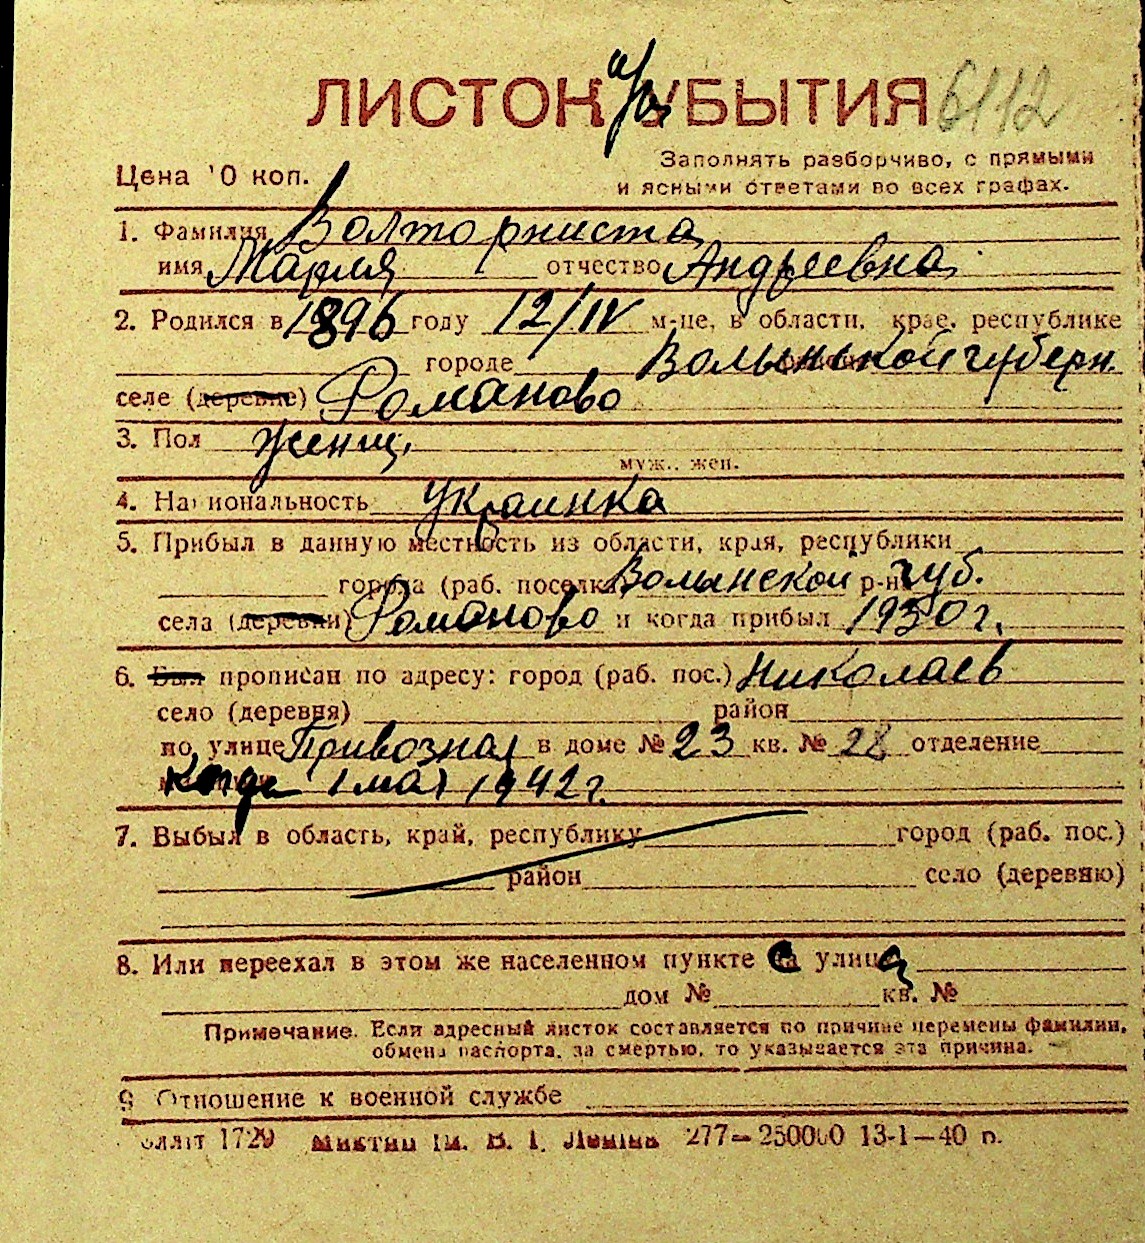 ЛИСТОК УБЫТИЯ 6112
Цена 10 коп.
Заполнять разборчиво, с прямыми
и ясными ответами во всех графах.
1. Фамилия Волторниста
имя Мария отчество Андреевна
2. Родился в 1896 году 12/IV м-це, в области, крае, республике
городе Волынькой губерн.
селе (деревне) Романово
3. Пол женщ.
муж., жен.
4. Национальность украинка
5. Прибыл в данную местность из области, края, республики
города (раб. поселка) Волынской р-н губ.
села (деревни) Романово и когда прибыл 1930 г.
6. Был прописан по адресу: город (раб. пос.) Николаев
село (деревня) район
по улице Привозная в доме № 23 кв. № 28 отделение
когда 1 мая 1942 г.
7. Выбыл в область, край, республику город (раб. пос.)
район село (деревню)
8. Или переехал в этом же населенном пункте с улицы
дом № кв. №
Примечание. Если адресный листок составляется по причине перемены фамилии,
обмена паспорта, за смертью, то указывается эта причина.
9 Отношение к военной службе
1729 ім. В. І. Леніна 277—250000 13-1—40 р.